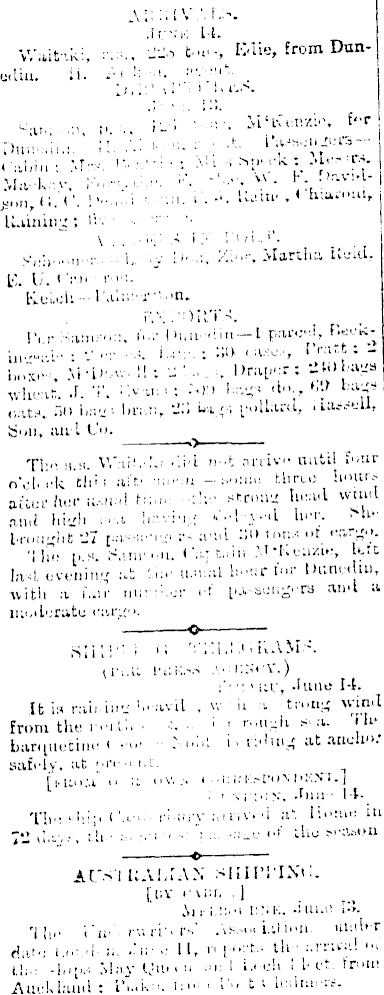 ARRIVALS.
JUNE 14.
Waitaki, s.s., 228 tons, Edie, from Dun-
edin. H. agent.
DEPARTURES.
JUNE 13.
Samson, p.s., 124 tons, M'Kenzie, for
Dunedin. Passengers—
Cabin: Mrs. Miss Speck; Messrs.
Mackay, W. F. David-
son, G. C. Chiaroni,
Raining;
VESSELS IN PORT.
Schooners— Zior, Martha Reid,
E. U. Cameron.
Ketch—Palmerston.
EXPORTS.
Per Samson, for Dunedin—1 parcel, Beck-
ingsale; 2 30 cases, Pratt; 2
boxes, M'Dowell; 2 Draper; 240 bags
wheat, J. T. Evans; bags do., 69 bags
oats, 50 bags bran, 23 bags pollard, Hassell,
Son, and Co.
The s.s. Waitaki did not arrive until four
o'clock this afternoon—some three hours
after her usual time—the strong head wind
and high sea having delayed her. She
brought 27 passengers and 30 tons of cargo.
The p.s. Samson, Captain M'Kenzie, left
last evening at the usual hour for Dunedin,
with a fair number of passengers and a
moderate cargo.
SHIPPING TELEGRAMS.
(PER PRESS AGENCY.)
TIMARU, June 14.
It is raining heavily, with a strong wind
from the rough sea. The
barquentine George Noble is riding at anchor
safely, at present.
[FROM OUR OWN CORRESPONDENT.]
DUNEDIN, June 14.
The ship Canterbury arrived at Home in
72 days, the passage of the season
AUSTRALIAN SHIPPING.
[BY CABLE.]
MELBOURNE, June 13.
The Underwriters' Association, under
date London, June 11, reports the arrival of
the ships May Queen and Loch Fleet, from
Auckland; Piako, from Port Chalmers.